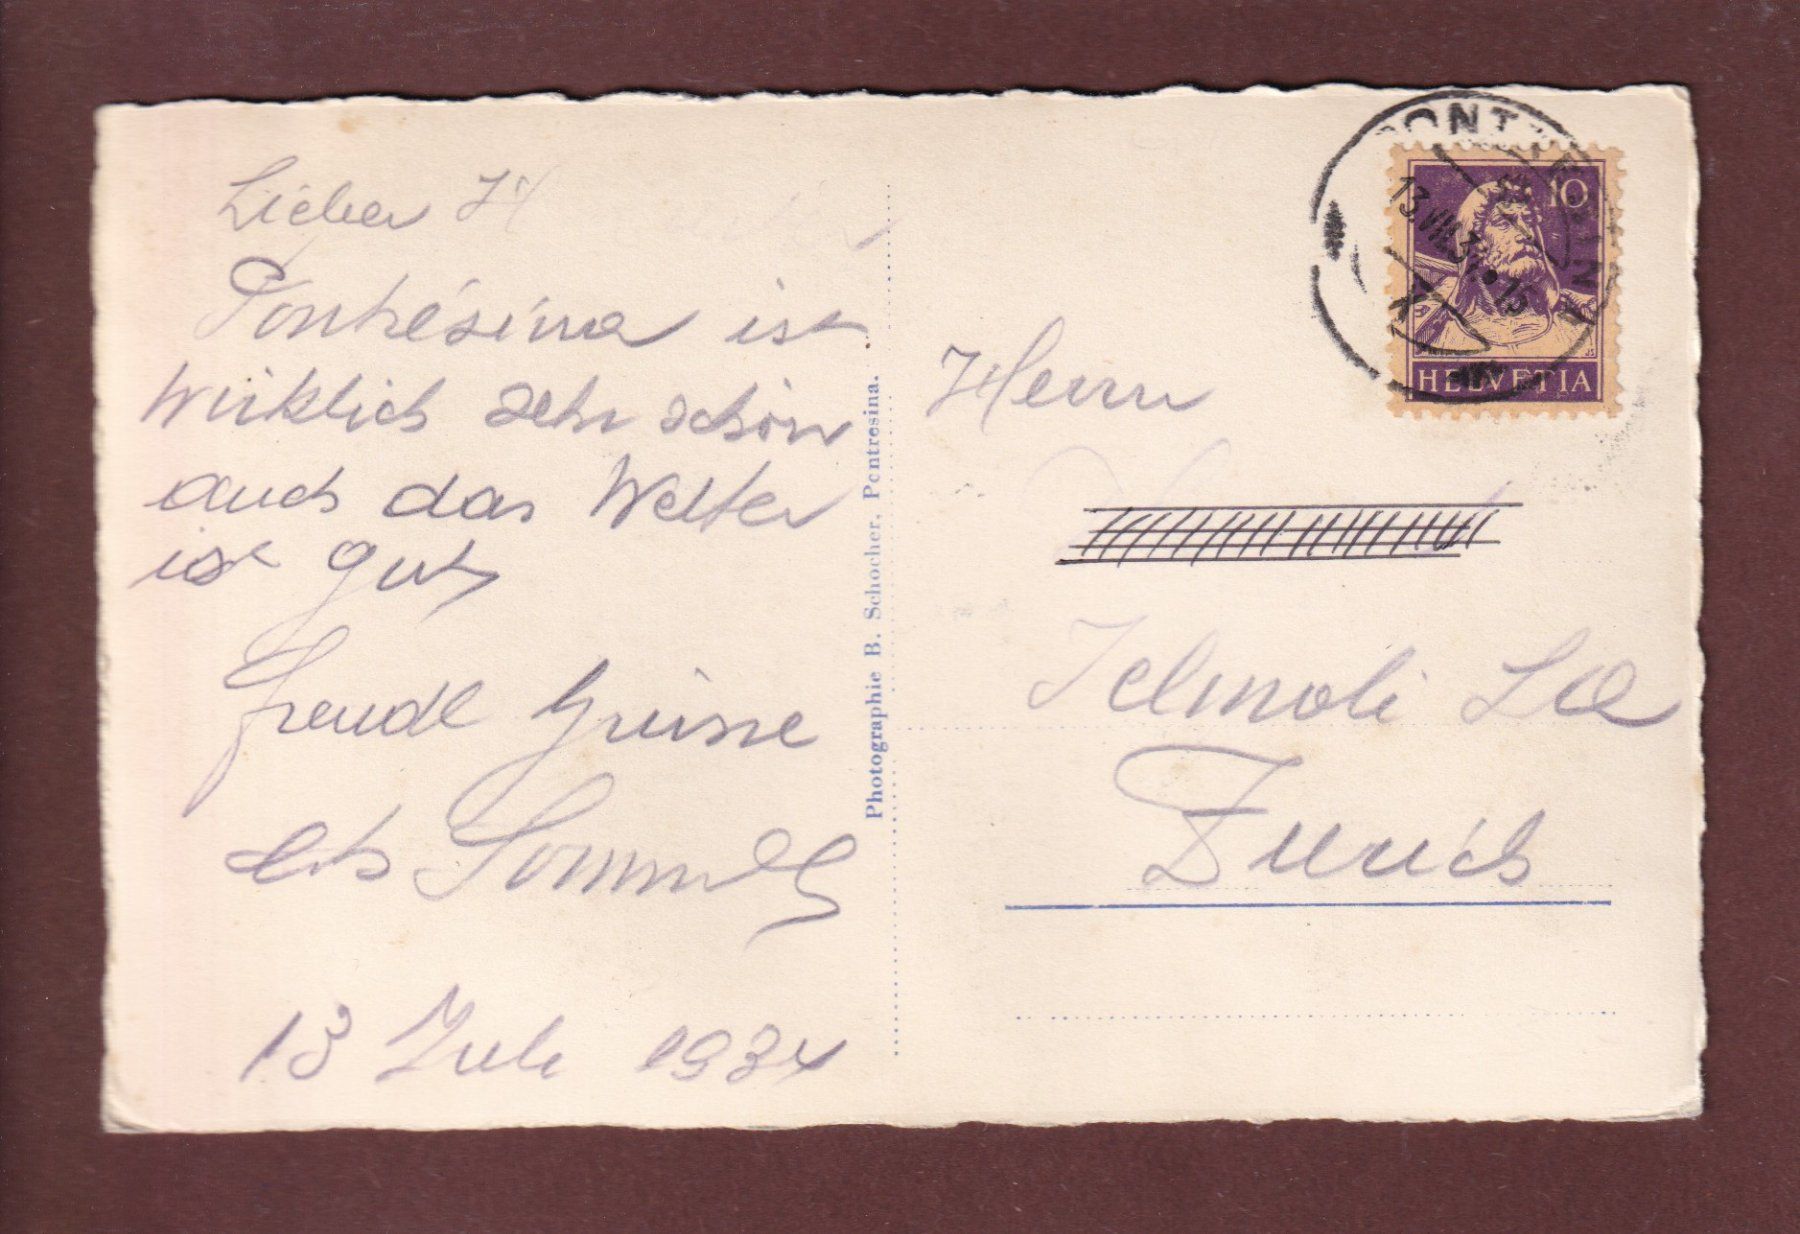 Lieber H
Pontrésina ist
wirklich sehr schön
auch das Wetter
ist gut
freudl Grüsse
13 Juli 1934
Photographie B. Schocher, Pontresina.
PONTRESINA
13.VII.34
10
HELVETIA
Herrn
Jelmoli
Zürich